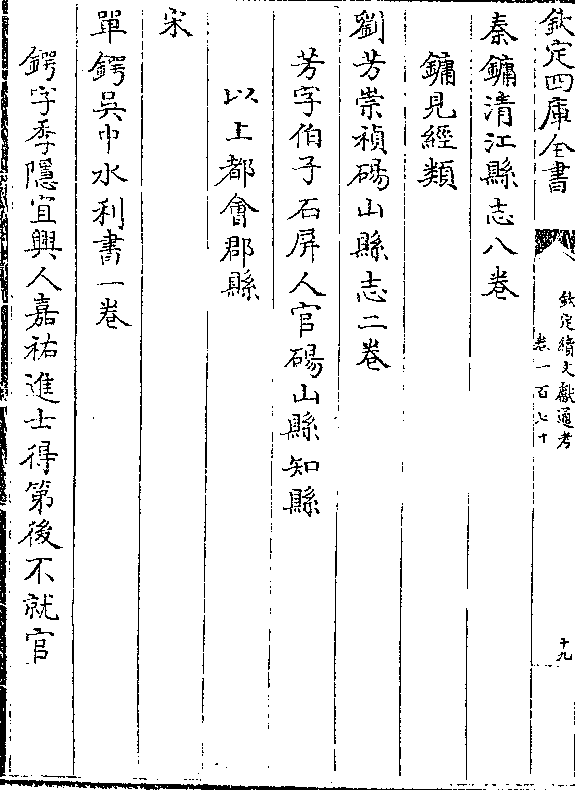 欽定四庫全書
欽定續文獻通考
卷一百七十
十九
秦鏞清江縣志八卷
鏞見經類
劉芳崇禎碭山縣志二卷
芳字伯子石屏人官碭山縣知縣
以上都會郡縣
宋
單鍔吳中水利書一卷
鍔字季隱宜興人嘉祐進士得第後不就官